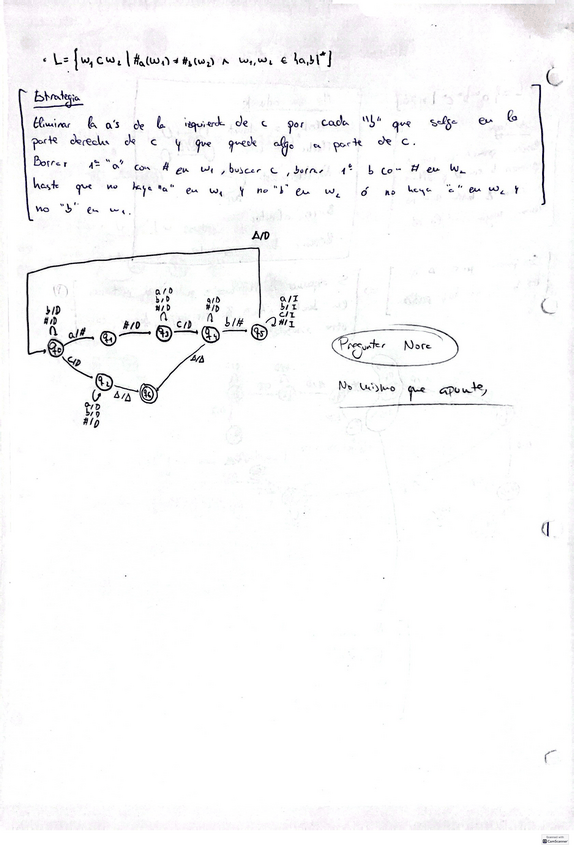 · L = { w₁ c w₂ | #a(w₁) ≠ #b(w₂) ∧ w₁, w₂ ∈ {a,b}* }
Estrategia
Eliminar la a's de la izquierda de c por cada "b" que salga en la
parte derecha de c y que quede algo a parte de c.
Borrar 1ª "a" con # en w₁, buscar c, borrar 1ª b con # en w₂
hasta que no haya "a" en w₁ y no "b" en w₂ ó no haya "a" en w₂ y
no "b" en w₁.
Δ/D
b/D
#/D
q0
a/#
q1
#/D
a/D
b/D
#/D
q3
c/D
a/D
#/D
q4
b/#
q5
a/I
b/I
c/I
#/I
c/D
q2
a/D
b/D
#/D
Δ/Δ
q6
Δ/Δ
Preguntar Nore
No mismo que apunte,
Scanned with
CamScanner